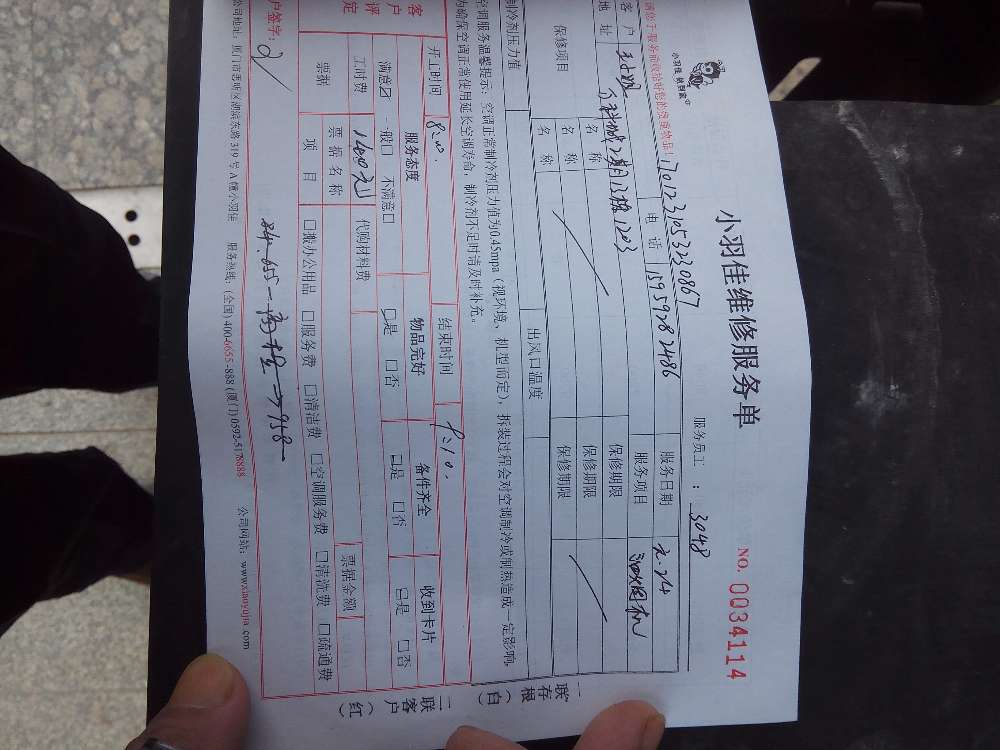 小羽佳 快到家
小羽佳维修服务单
服务员工：3048
NO. 0034114
请您于服务前收拾好您的贵重物品！
17012310532 30867
客户 电话 15959282486 服务日期
地址 2期13栋1203 服务项目
保修项目 名称 保修期限
名称 保修期限
名称 保修期限
制冷剂压力值 出风口温度
空调服务温馨提示：空调正常制冷剂压力值为0.45mpa（视环境、机型而定），拆装过程会对空调制冷或制热造成一定影响，
为确保空调正常使用延长空调寿命，制冷剂不足时请及时补充。
开工时间 8:00. 结束时间 9:10.
客户评定 服务态度 物品完好 备件齐全 收到卡片
满意 一般 不满意 是 否 是 否 是 否
工时费 140元 代购材料费
票据 票据名称 票据金额
项目 搬办公用品 服务费 清洁费 空调服务费 清洗费 疏通费
客户签字：
公司地址：厦门市思明区湖滨东路319号A幢小羽佳 服务热线：(全国) 400-6655-888 (厦门) 0592-5178888 公司网站：www.xiaoyujia.com
一联存根（白）
二联客户（红）